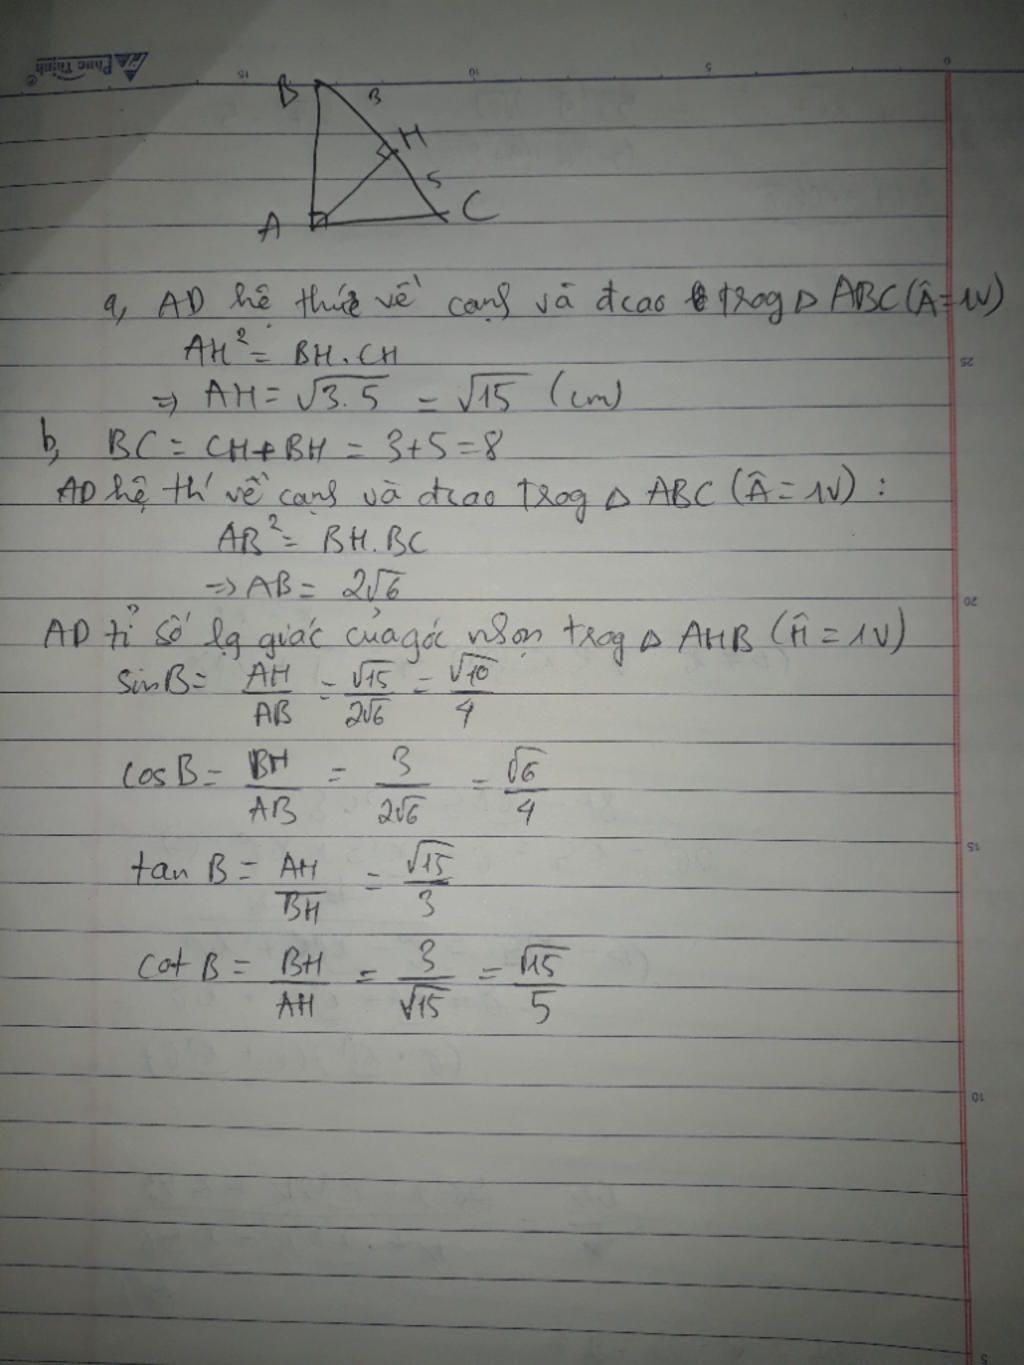 Phúc Thịnh®
15 10 5 0
B 3
H
5
A C
a, AD hệ thức về cạnh và đcao trog △ ABC (Â = 1V)
AH² = BH.CH
⇒ AH = √3.5 = √15 (cm)
25
b, BC = CH + BH = 3+5 = 8
AD hệ th' về cạnh và đcao trog △ ABC (Â = 1V) :
AB² = BH.BC
⇒ AB = 2√6
20
AD tỉ số lg giác của góc nhọn trog △ AHB (Ĥ = 1V)
sin B = AH/AB = √15/2√6 = √10/4
cos B = BH/AB = 3/2√6 = √6/4
15
tan B = AH/BH = √15/3
cot B = BH/AH = 3/√15 = √15/5
10
5